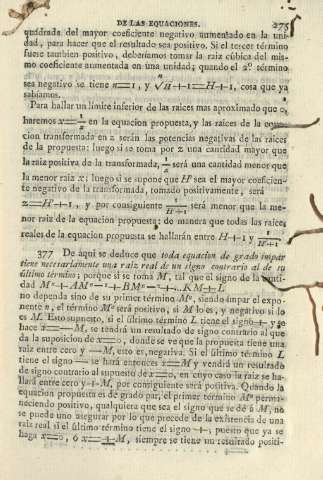 DE LAS EQUACIONES. 275
quadrada del mayor coeficiente negativo aumentado en la uni-
dad, para hacer que el resultado sea positivo. Si el tercer término
fuese tambien positivo, deberíamos tomar la raiz cúbica del mis-
mo coeficiente aumentada en una unidad; quando el 2º término
sea negativo se tiene n=1, y √H+1=H+1, cosa que ya
sabiamos.
Para hallar un límite inferior de las raices mas aproximado que 0,
haremos x=1/z en la equacion propuesta, y las raices de la equa-
cion transformada en z serán las potencias negativas de las raices
de la propuesta: luego si se toma por z una cantidad mayor que
la raiz positiva de la transformada, 1/z será una cantidad menor que
la menor raiz x; luego si se supone que H sea el mayor coeficien-
te negativo de la transformada, tomado positivamente, será
z=H+1, y por consiguiente 1/H+1 será menor que la me-
nor raiz de la equacion propuesta: de manera que todas las raices
reales de la equacion propuesta se hallarán entre H+1 y 1/H+1
377 De aqui se deduce que toda equacion de grado impar
tiene necesariamente una raiz real de un signo contrario al de su
último término; porque si se toma M, tal que el signo de la canti-
dad Mⁿ+AMⁿ⁻¹+BMⁿ⁻²+...KM+L
no dependa sino de su primer término Mⁿ, siendo impar el expo-
nente n, el término Mⁿ será positivo, si M lo es, y negativo si lo
es M. Esto supuesto, si el último término L tiene el signo + y se
hace x=—M, se tendrá un resultado de signo contrario al que
da la suposicion de x=0, donde se ve que la propuesta tiene una
raiz entre cero y —M, esto es, negativa. Si el último término L
tiene el signo — se hará entonces x=M y vendrá un resultado
de signo contrario al supuesto de x=0, en cuyo caso la raiz se ha-
llará entre cero y +M, por consiguiente será positiva. Quando la
equacion propuesta es de grado par, el primer término Mⁿ perma-
neciendo positivo, qualquiera que sea el signo que se dé á M, no
se puede uno asegurar por lo que precede de la existencia de una
raiz real si el último término tiene el signo +, puesto que ya se
haga x=0, ó x=±M, siempre se tiene un resultado positi-